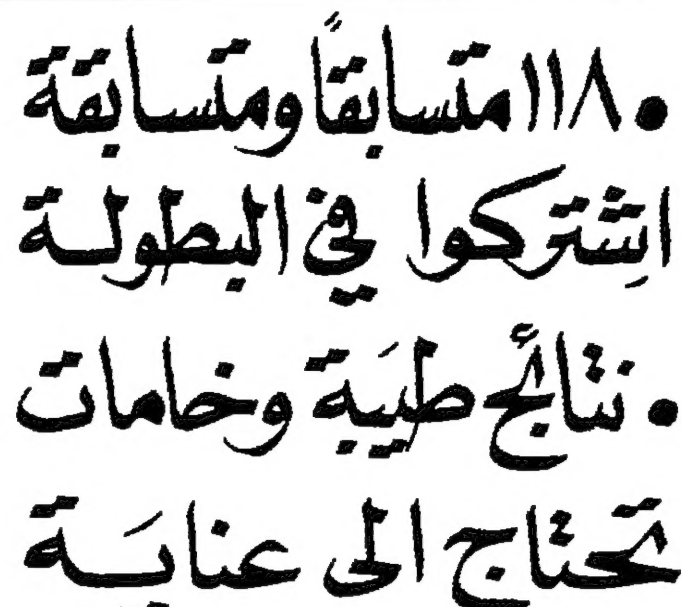 • ١١٨ متسابقاً ومتسابقة
اشِتركوا في البطولة
• نتائج طيَبة وخامات
تحتاج الى عنايَة